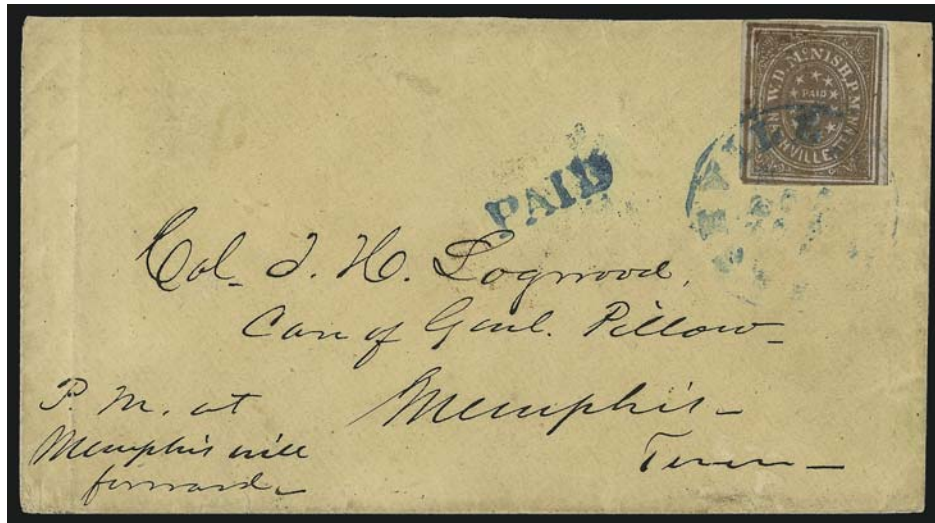 W.D. McNISH, P.M.
PAID
NASHVILLE, TENN.
PAID
Col. T. H. Logwood,
Care of Genl. Pillow
Memphis
Tenn
P. M. at
Memphis will
forward